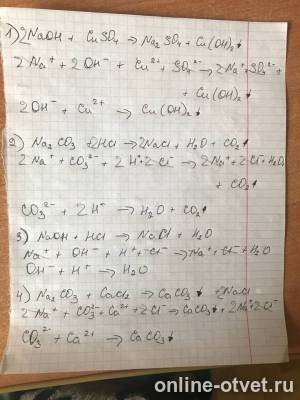 1) 2NaOH + CuSO₄ → Na₂SO₄ + Cu(OH)₂↓
2Na⁺ + 2OH⁻ + Cu²⁺ + SO₄²⁻ → 2Na⁺ + SO₄²⁻ +
+ Cu(OH)₂↓
2OH⁻ + Cu²⁺ → Cu(OH)₂↓
2) Na₂CO₃ + 2HCl → 2NaCl + H₂O + CO₂↑
2Na⁺ + CO₃²⁻ + 2H⁺ + 2Cl⁻ → 2Na⁺ + 2Cl⁻ + H₂O
+ CO₂↑
CO₃²⁻ + 2H⁺ → H₂O + CO₂↑
3) NaOH + HCl → NaCl + H₂O
Na⁺ + OH⁻ + H⁺ + Cl⁻ → Na⁺ + Cl⁻ + H₂O
OH⁻ + H⁺ → H₂O
4) Na₂CO₃ + CaCl₂ → CaCO₃↓ + 2NaCl
2Na⁺ + CO₃²⁻ + Ca²⁺ + 2Cl⁻ → CaCO₃↓ + 2Na⁺ + 2Cl⁻
CO₃²⁻ + Ca²⁺ → CaCO₃↓
online-otvet.ru